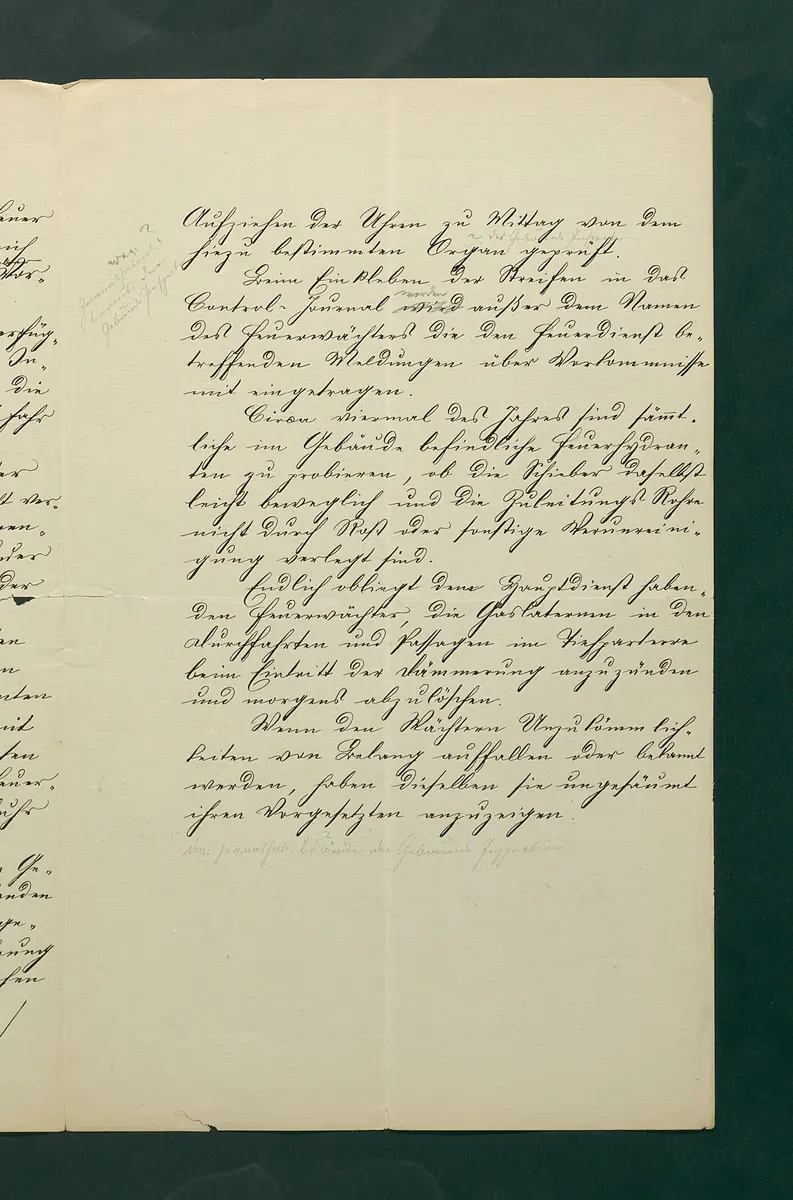 Aufziehen der Uhren zu Mittag von dem
hiezu bestimmten Organ geprüft.
wer?
Beim Einkleben der Streifen in das
werden
Control-Journal wird außer dem Namen
des Feuerwächters die den Feuerdienst be-
treffenden Meldungen über Vorkommnisse
mit eingetragen.
Circa viermal des Jahres sind sämmt-
liche im Gebäude befindliche Feuerhydran-
ten zu probieren, ob die Schieber daselbst
leicht beweglich und die Zuleitungs Rohre
nicht durch Rost oder sonstige Verunreini-
gung verlegt sind.
Endlich obliegt dem Hauptdienst haben-
den Feuerwächter, die Gaslaternen in den
Durchfahrten und Passagen im Tiefparterre
beim Eintritt der Dämmerung anzuzünden
und morgens abzulöschen.
Wenn den Wächtern Unzukömmlich-
keiten von Belang auffallen oder bekannt
werden, haben dieselben sie ungesäumt
ihren Vorgesetzten anzuzeigen.
der Gebäude Inspection